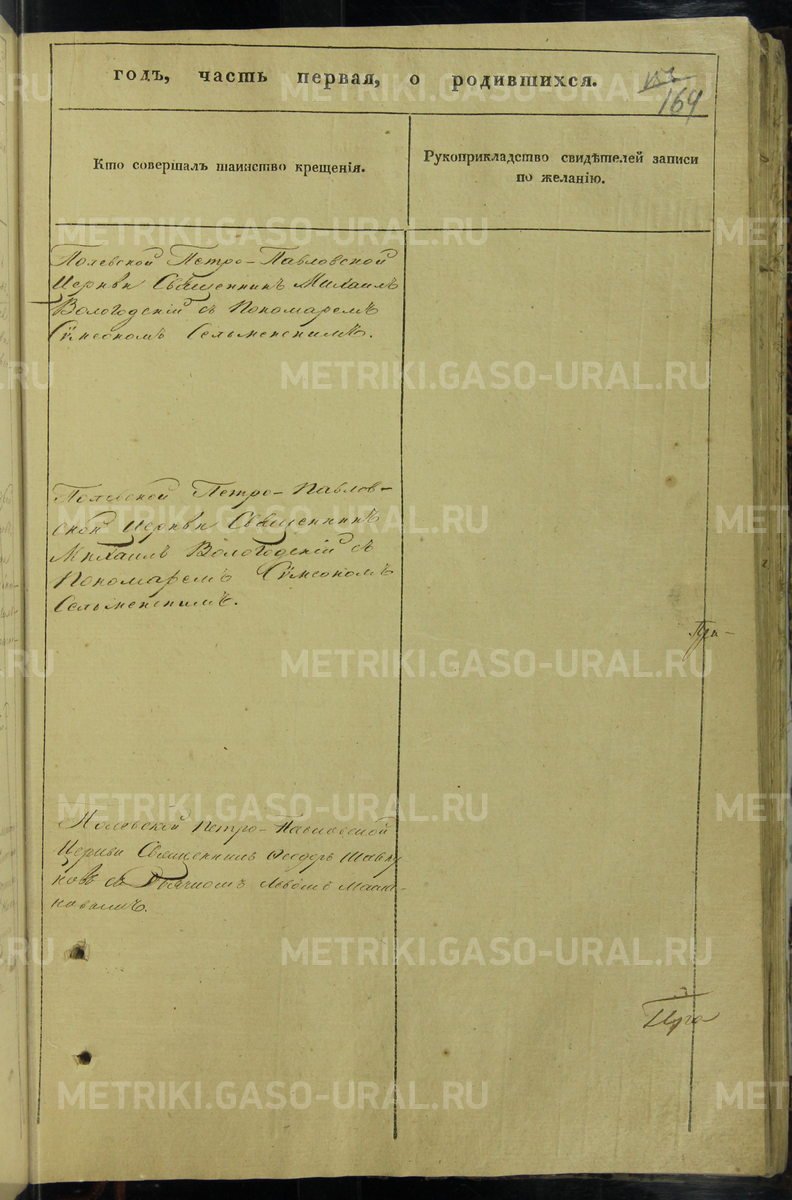 годъ, часть первая, о родившихся.
153
169
Кто совершалъ таинство крещенія.
Рукоприкладство свидѣтелей записи
по желанію.
Полевской Петро-Павловской
Церкви Священникъ Михаилъ
Вологодскій съ Пономаремъ
Сѵмеономъ
Полевской Петро-Павлов-
ской Церкви Священникъ
Михаилъ Вологодскій съ
Пономаремъ Сѵмеономъ
Полевской Петро-Павловской
Церкви Священникъ Ѳеодоръ
съ Дьячкомъ Львомъ
METRIKI.GASO-URAL.RU